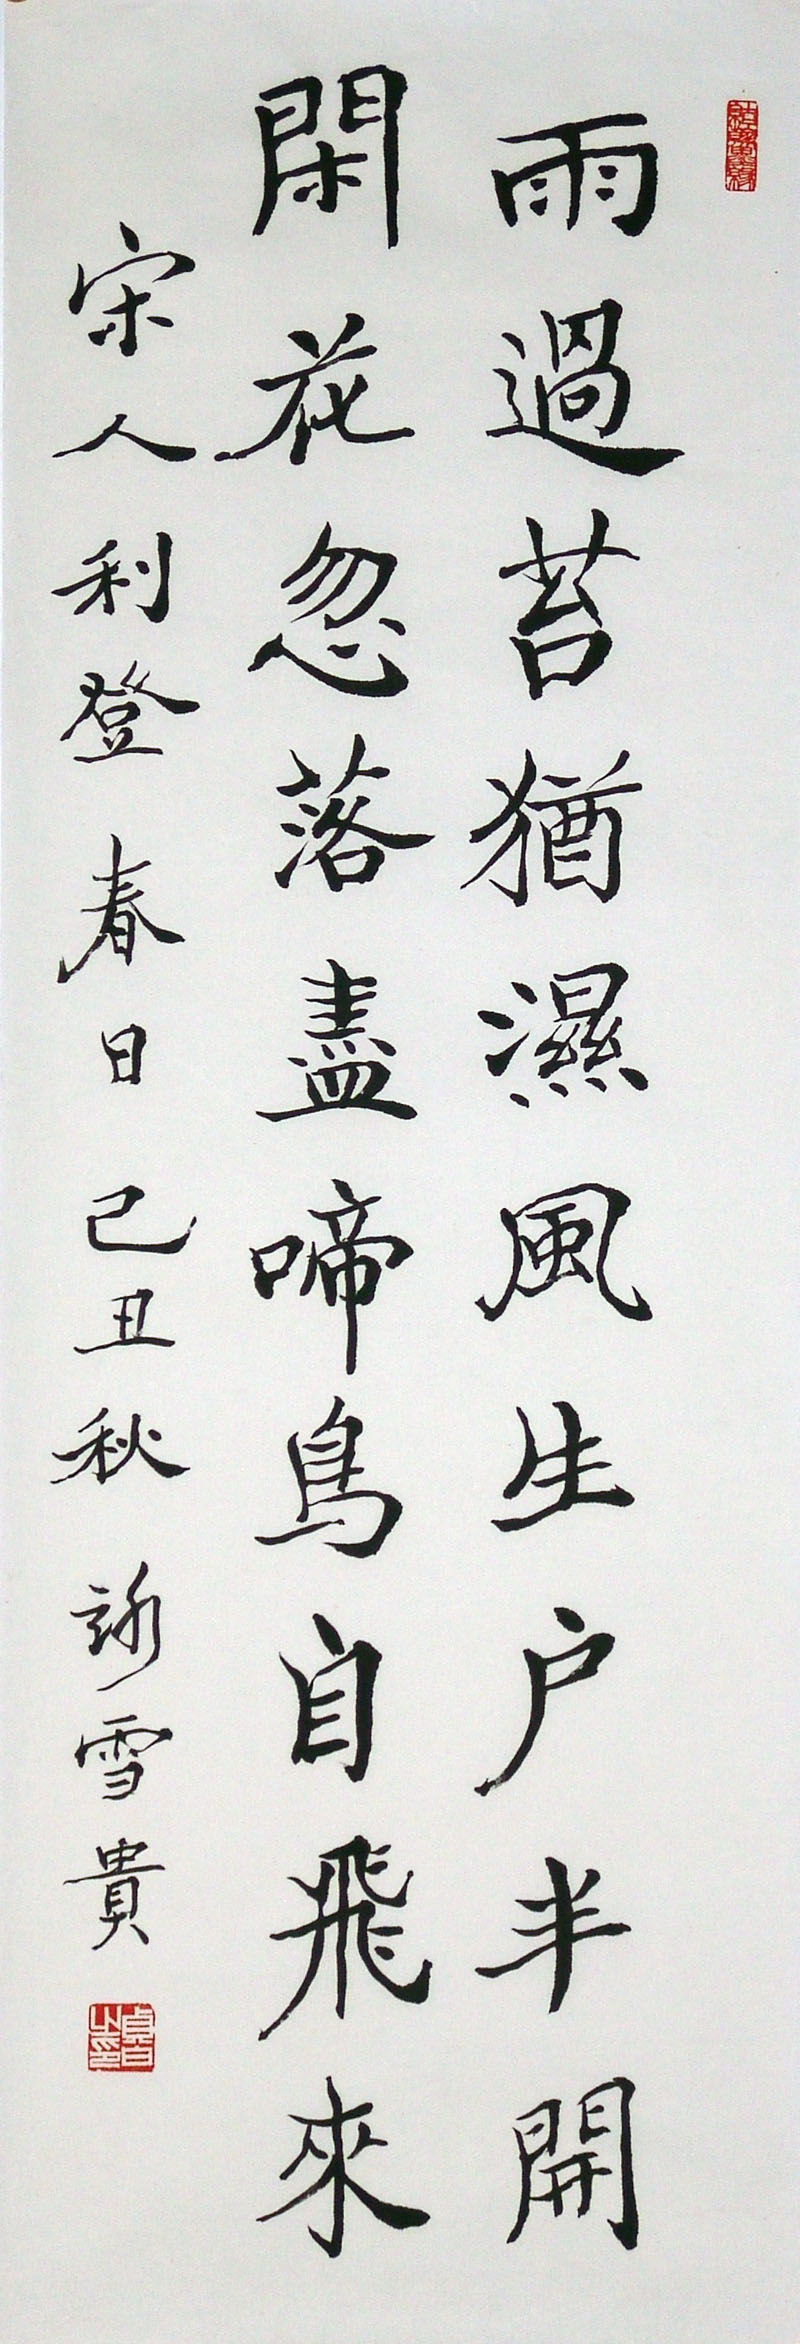 雨過苔猶濕風生户半開
閑花忽落盡啼鳥自飛來
宋人利登春日己丑秋詠雪貴